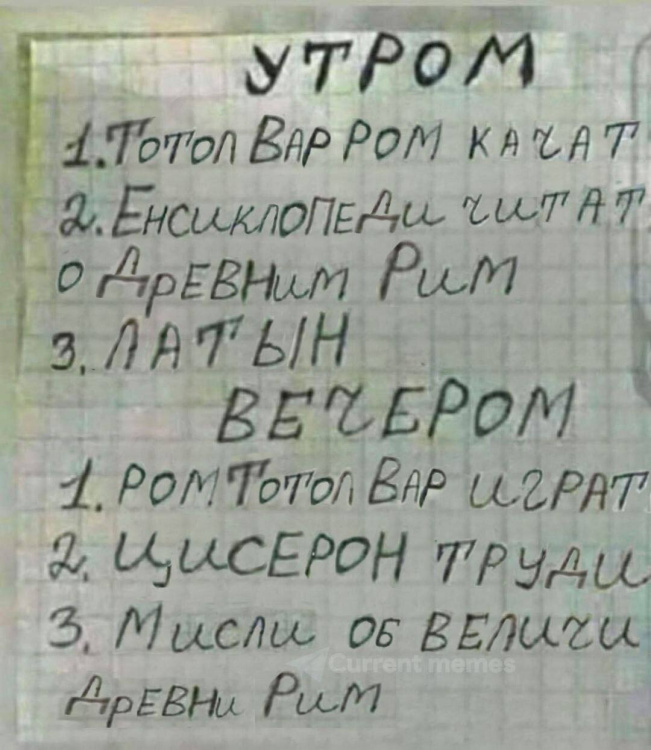 УТРОМ
1. ТОТОЛ ВАР РОМ КАЧАТ
2. ЕНСИКЛОПЕДИ ЧИТАТ
О ДРЕВНИМ РИМ
3. ЛАТЫН
ВЕЧЕРОМ
1. РОМ ТОТОЛ ВАР ИГРАТ
2. ЦИСЕРОН ТРУДИ
3. МИСЛИ ОБ ВЕЛИЧИ
Current memes
ДРЕВНИ РИМ